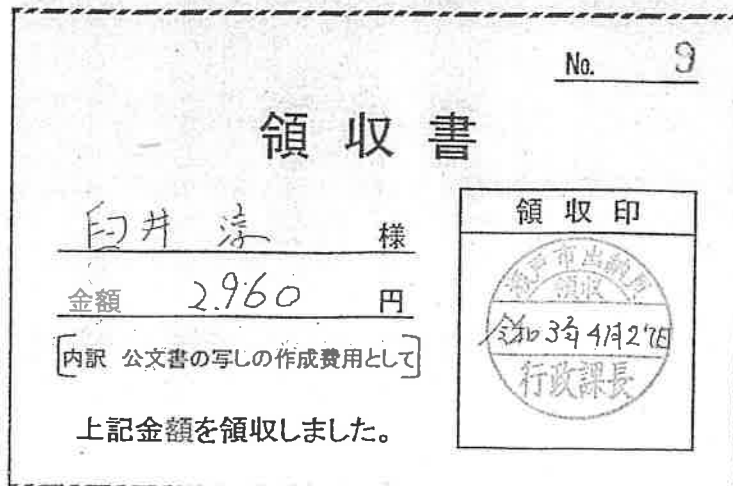 No. 9
領収書
臼井 淳 様
金額 2,960 円
[内訳 公文書の写しの作成費用として]
上記金額を領収しました。
領収印
瀬戸市出納員
領収
令和3年4月27日
行政課長